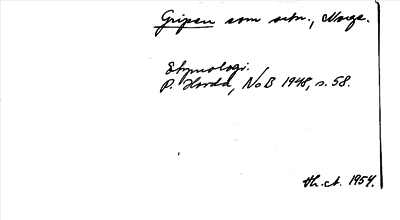 Gripen som setn., Norge.
Etymologi.
P. Hovda, NoB 1948, s. 58.
Th. ct. 1954.